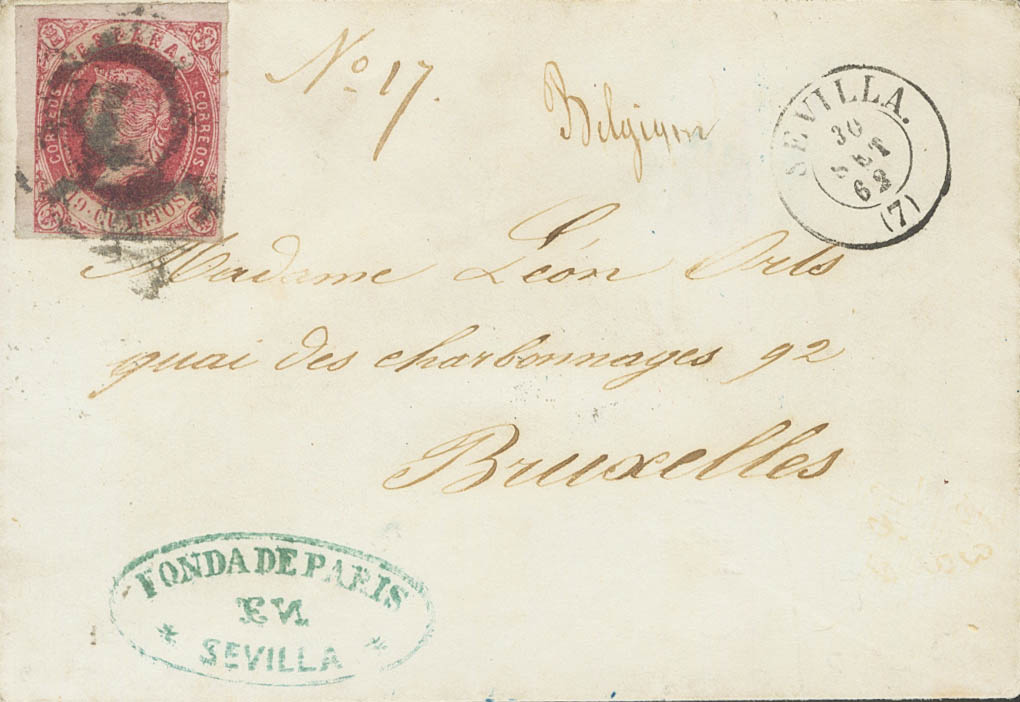 CORREOS
CORREOS
19 CUARTOS
No. 17.
SEVILLA.
30
SET
62
(7)
Madame Léon Orts
quai des charbonnages 92
Bruxelles
FONDA DE PARIS
EN
* SEVILLA *